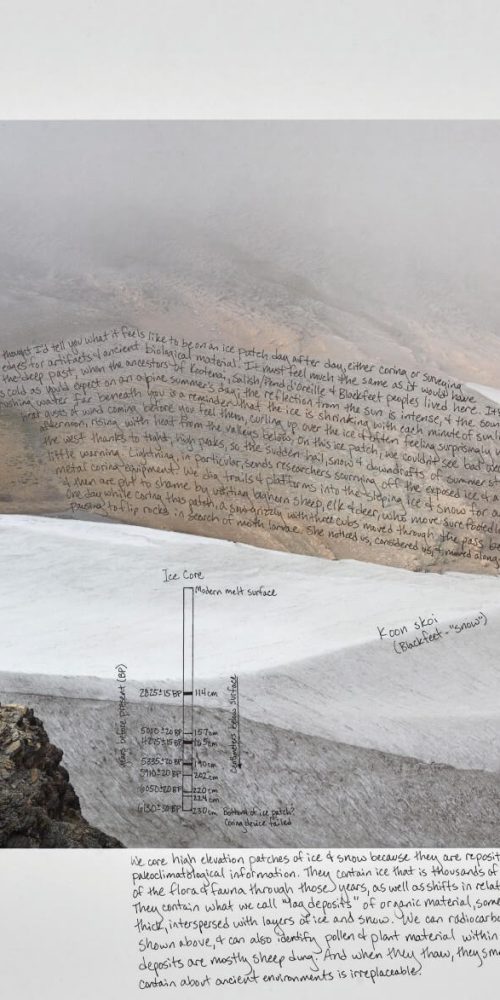 thought I'd tell you what it feels like to be on an ice patch day after day, either coring or surveying
edges for artifacts & ancient biological material. It must feel much the same as it would have
the deep past, when the ancestors of Kootenai, Salish/Pend d'Oreille & Blackfeet peoples lived here. It
cold as you'd expect on an alpine summer's day; the reflection from the sun is intense, & the soun
rushing water far beneath you is a reminder that the ice is shrinking with each minute of sun
gusts of wind coming before you feel them, curling up over the ice & often feeling surprisingly
afternoon, rising with heat from the valleys below. On this ice patch, we couldn't see bad
the west thanks to tight, high peaks, so the sudden hail, snow & downdrafts of summer st
little warning. Lightning, in particular, sends researchers scurrying off the exposed ice &
metal coring equipment. We dig trails & platforms into the sloping ice & snow for
& then are put to shame by visiting bighorn sheep, elk & deer, who move sure footed
One day while coring this patch, a sow grizzly with three cubs moved through the pass
pausing to flip rocks in search of moth larvae. She noticed us, considered us, & moved along
Ice Core
Modern melt surface
Koon skoi
(Blackfeet - "snow")
Years before present (BP)
Centimeters below surface
2825±15 BP 114cm
5020±20 BP 157cm
4275±15 BP 165cm
5335±20 BP 190cm
5910±20 BP 202cm
6050±20 BP 220cm
224cm
6130±30 BP 230cm Bottom of ice patch?
Coring device failed
We core high elevation patches of ice & snow because they are reposit
paleoclimatological information. They contain ice that is thousands of
of the flora & fauna through those years, as well as shifts in relat
They contain what we call "lag deposits" of organic material, some
thick, interspersed with layers of ice and snow. We can radiocarbo
shown above, & can also identify pollen & plant material within
deposits are mostly sheep dung. And when they thaw, they sm
contain about ancient environments is irreplaceable.